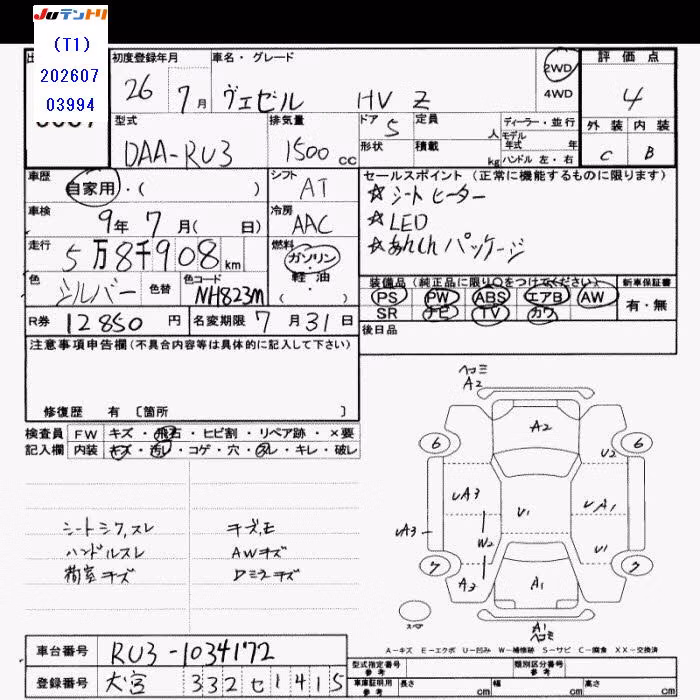 Juテントリ
(T1)
202607
03994
初度登録年月 車名・グレード 評価点
26 7月 ヴェゼル HV Z 2WD 4WD 4
型式 排気量 ドア 5 定員 人 ディーラー・並行 外装 内装
DAA-RU3 1500cc 形状 積載 kg モデル年式 年 ハンドル 左・右 C B
車歴 シフト セールスポイント(正常に機能するものに限ります)
自家用・( ) AT ☆シートヒーター
車検 9年7月( 日) 冷房 AAC ☆LED
走行 5万8千908km 燃料 ガソリン・軽油・( ) ☆あんしんパッケージ
色 シルバー 色替 色コード NH823M 装備品(純正品に限り○をつけてください) 新車保証書
PS PW ABS エアB AW 有・無
SR ナビ TV カワ
R券 12850円 名変期限 7月31日 後日品
注意事項申告欄(不具合内容等は具体的に記入して下さい)
修復歴 有 〔箇所 〕
検査員 FW キズ・飛石・ヒビ割・リペア跡・×要
記入欄 内装 キズ・汚レ・コゲ・穴・スレ・キレ・破レ
ヘコミ
A2
A2
6 6
U2
UA3 UA1
UA3 U1
W2 U1
7 7
A3 A1
スペア
A1
ヘコミ
シートシワ,スレ キズ,モ
ハンドルスレ AWキズ
荷室キズ Dミラキズ
A-キズ E-エクボ U-凹み W-補修跡 S-サビ C-腐食 XX-交換済
車台番号 RU3-1034172 型式指定番号 参考 類別区分番号 参考
登録番号 大宮 332 セ 1415 車庫証明用 参考 長さ cm 幅 cm 高さ cm